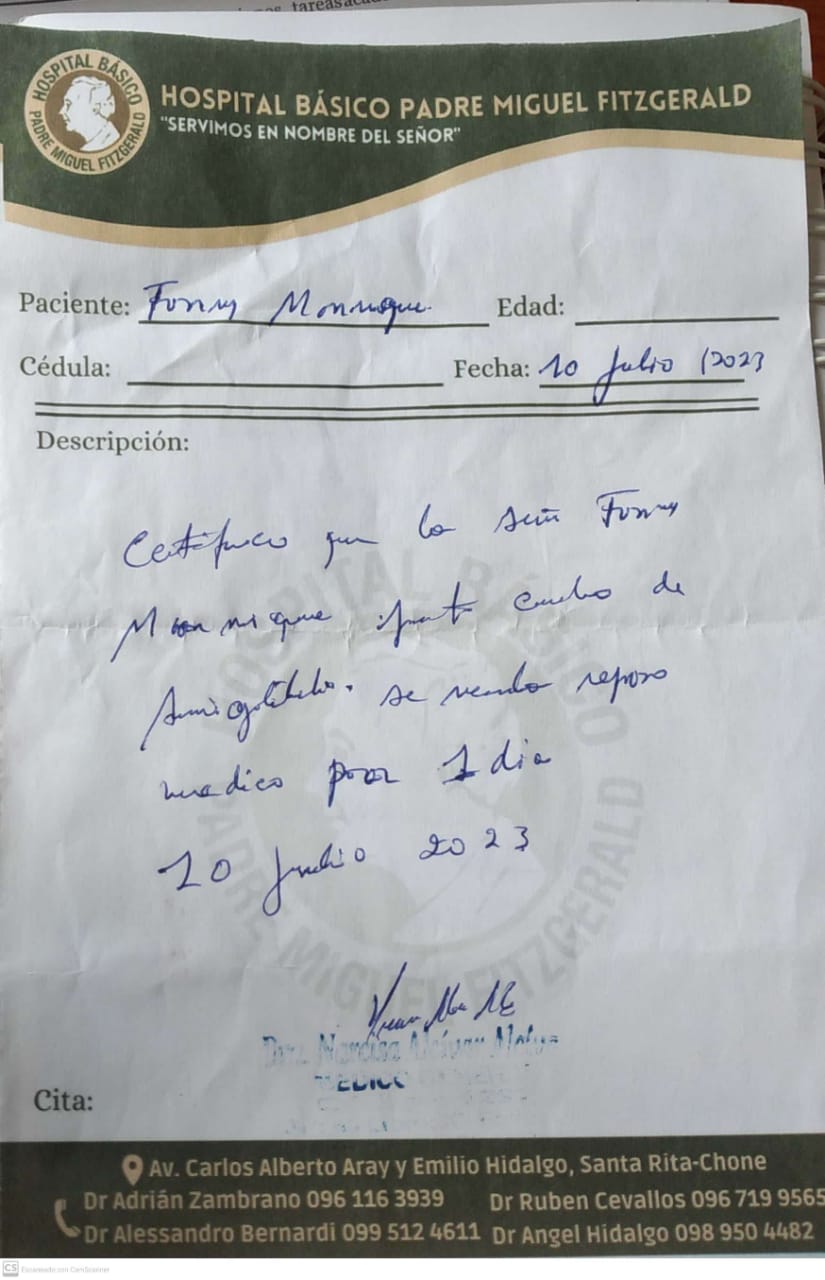 tareas
HOSPITAL BÁSICO
PADRE MIGUEL FITZGERALD
HOSPITAL BÁSICO PADRE MIGUEL FITZGERALD
"SERVIMOS EN NOMBRE DEL SEÑOR"
Paciente: Fonny Monrique Edad:
Cédula: Fecha: 10 Julio /2023
Descripción:
Certifico que la Fonny
Monrique cuadro de
se reposo
medico por 1 dia
10 Julio 2023
HOSPITAL BÁSICO
PADRE MIGUEL FITZGERALD
Dra. Narcisa Alcívar
MEDICO
Cita:
Av. Carlos Alberto Aray y Emilio Hidalgo, Santa Rita-Chone
Dr Adrián Zambrano 096 116 3939 Dr Ruben Cevallos 096 719 9565
Dr Alessandro Bernardi 099 512 4611 Dr Angel Hidalgo 098 950 4482
CS Escaneado con CamScanner